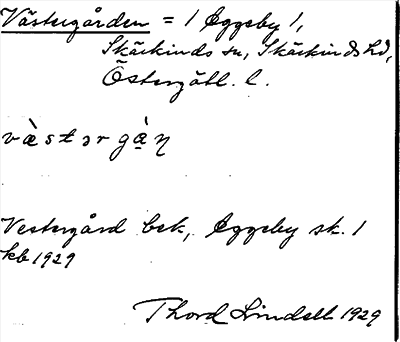 Västergården = 1 Eggeby 1,
Skärkinds sn, Skärkinds hd,
Östergötl. l.
væ̀stərgàɳ
Vestergård bek, Eggeby sk. 1
kb 1929
Thord Lindell 1929